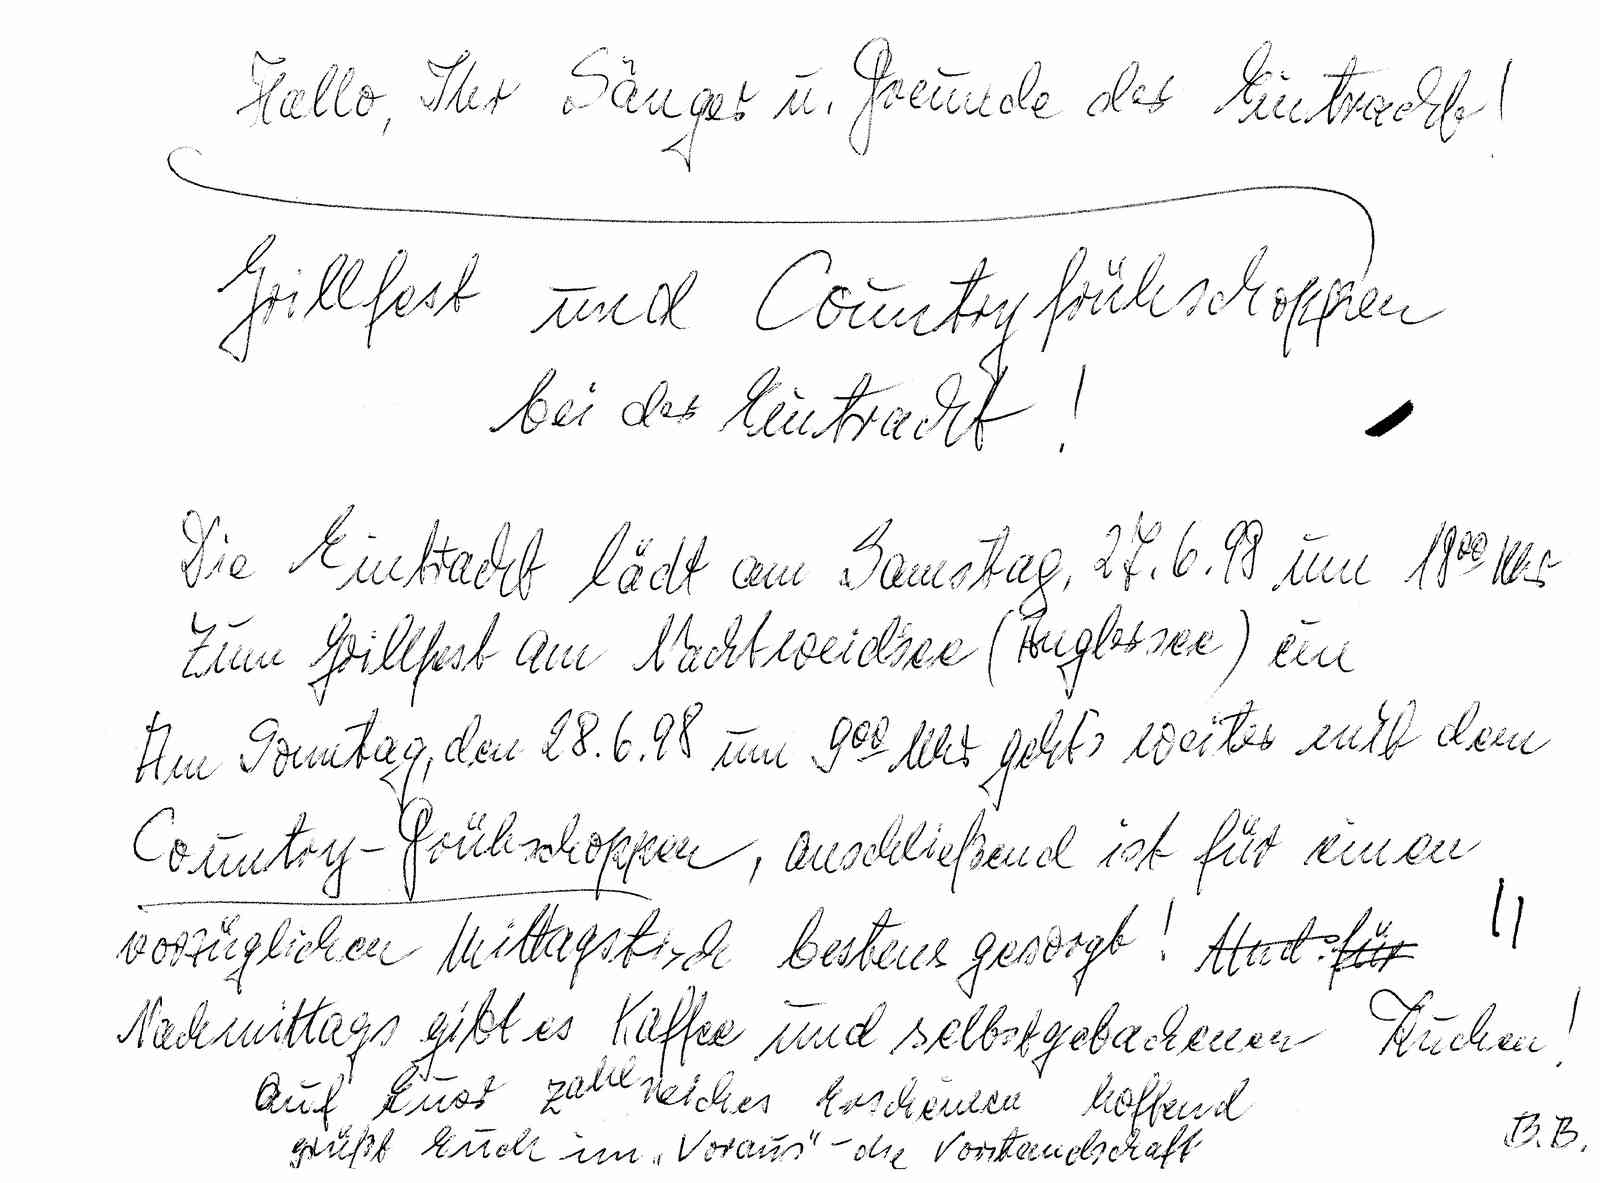 Hallo, Ihr Sänger u. Freunde der Eintracht!
Grillfest und Countryfrühschoppen
bei der Eintracht!
Die Eintracht lädt am Samstag, 27.6.98 um 18⁰⁰ Uhr
zum Grillfest am Nachtweidsee (Anglersee) ein
Am Sonntag, den 28.6.98 um 9⁰⁰ Uhr geht's weiter mit dem
Country-Frühschoppen, anschließend ist für einen
vorzüglichen Mittagstisch bestens gesorgt! Und für
Nachmittags gibt es Kaffee und selbstgebackenen Kuchen!
Auf Euer zahlreiches Erscheinen hoffend
grüßt Euch im "Voraus" - die Vorstandschaft
B.B.